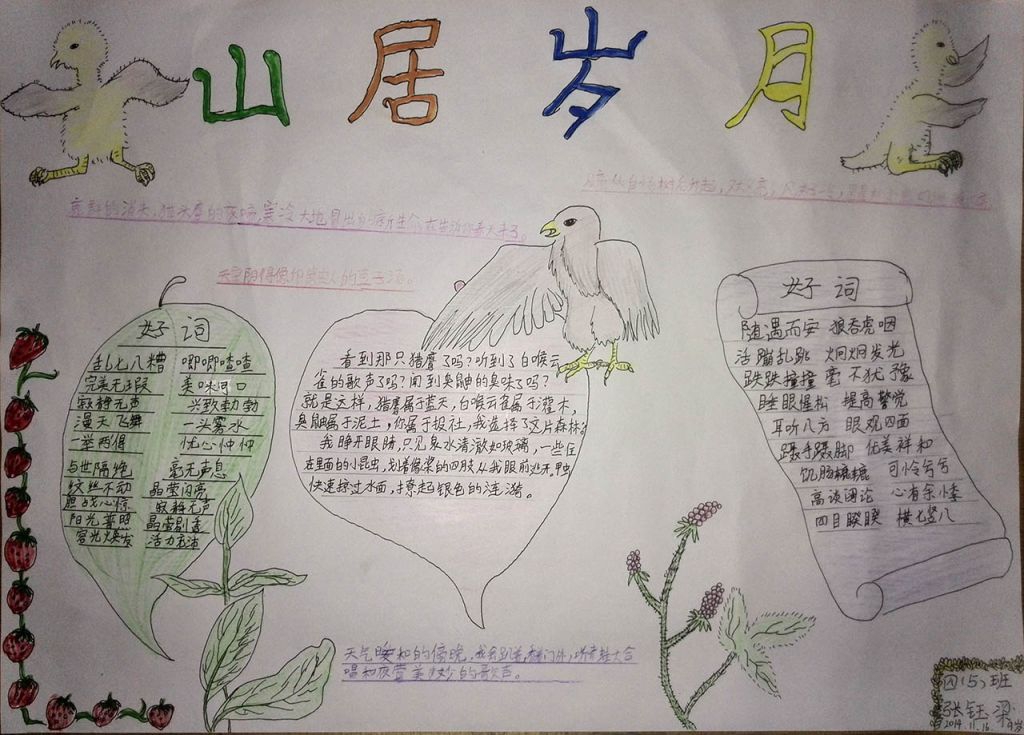 山居岁月
天气暖和的傍晚，我会趴着
唱和夜莺美妙的歌声。
好词
乱七八糟 唧唧喳喳
完美无瑕 美味可口
寂静无声 兴致勃勃
漫天飞舞 一头雾水
一举两得 忧心忡忡
与世隔绝 毫无声息
纹丝不动 晶莹闪亮
胆战心惊 寂静无声
阳光普照 晶莹剔透
容光焕发 活力充沛
看到那只猎鹰了吗？听到了白喉云
雀的歌声了吗？闻到臭鼬的臭味了吗？
就是这样，猎鹰属于蓝天，白喉云雀属于灌木，
臭鼬属于泥土，你属于役社，我选择了这片森林。
我睁开眼睛，只见泉水清澈如玻璃，一些住
在里面的小昆虫，划着像桨的四肢从我眼前逃开，甲虫
快速掠过水面，撩起银色的涟漪。
好词
随遇而安 狼吞虎咽
活蹦乱跳 炯炯发光
跌跌撞撞 毫不犹豫
睡眼惺松 提高警觉
耳听八方 眼观四面
蹑手蹑脚 优美祥和
饥肠辘辘 可怜兮兮
高谈阔论 心有余悸
四目睽睽 横七竖八
四(5)班
张钰梁
2014.11.16